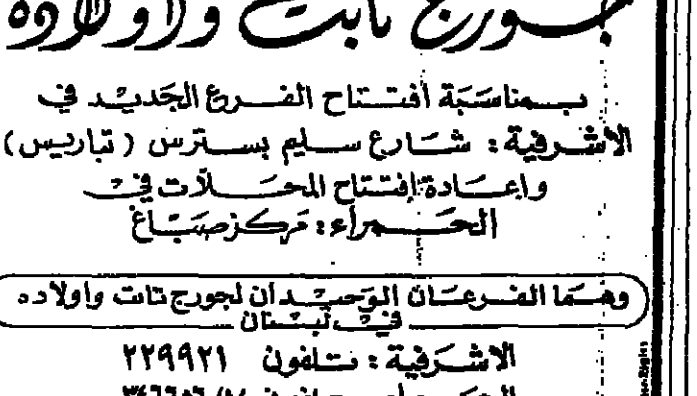 جورج تابت واولاده
بمناسبة افتتاح الفرع الجديد في
الاشرفية: شارع سليم بسترس (تباريس)
واعادة إفتتاح المحلات في
الحمراء: مركز صباغ
وهما الفرعان الوحيدان لجورج تابت واولاده
في لبنان
الاشرفية: تلفون ٢٢٩٩٢١